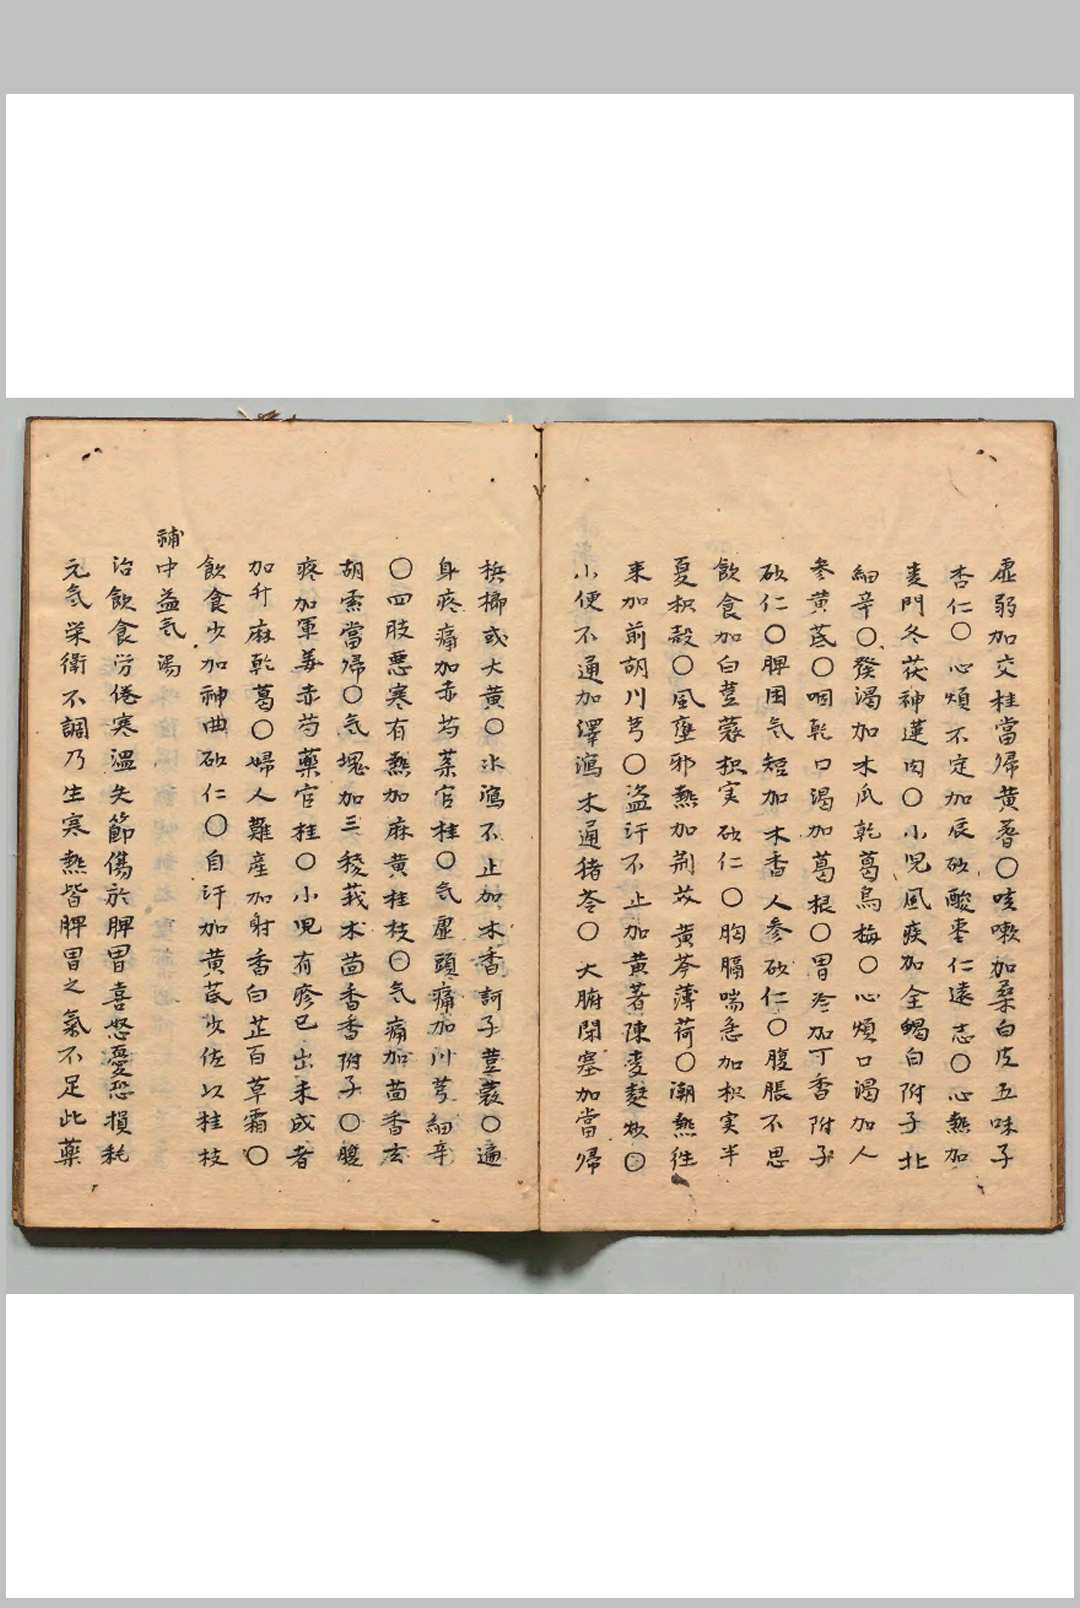 虚弱加交桂當帰黄蓍〇咳嗽加桑白皮五味子
杏仁〇心煩不定加辰砂酸棗仁遠志〇心熱加
麦門冬茯神蓮肉〇小児風疾加全蝎白附子北
細辛〇發渇加木瓜乾葛烏梅〇心煩口渇加人
参黄芪〇咽乾口渇加葛根〇胃冷加丁香附子
砂仁〇脾困気短加木香人参砂仁〇腹脹不思
飲食加白荳蔲枳実砂仁〇胸膈喘急加枳実半
夏枳殻〇風壅邪熱加荊芥黄芩薄荷〇潮熱徃
来加前胡川芎〇盗汗不止加黄蓍陳麦麩炒〇
小便不通加澤瀉木通猪苓〇大腑閉塞加當帰
梹榔或大黄〇氷瀉不止加木香訶子荳蔲〇遍
身疼痛加赤芍薬官桂〇気虚頭痛加川芎細辛
〇四肢悪寒有熱加麻黄桂枝〇気痛加茴香玄
胡索當帰〇気塊加三稜莪术茴香香附子〇腹
疼加軍姜赤芍藥官桂〇小児有疹已出未成者
加升麻乾葛〇婦人難産加射香白芷百草霜〇
飲食少加神曲砂仁〇自汗加黄芪少佐以桂枝
補中益気湯
治飲食労倦寒温失節傷於脾胃喜怒憂恐損耗
元気栄衛不調乃生寒熱皆脾胃之氣不足此藥